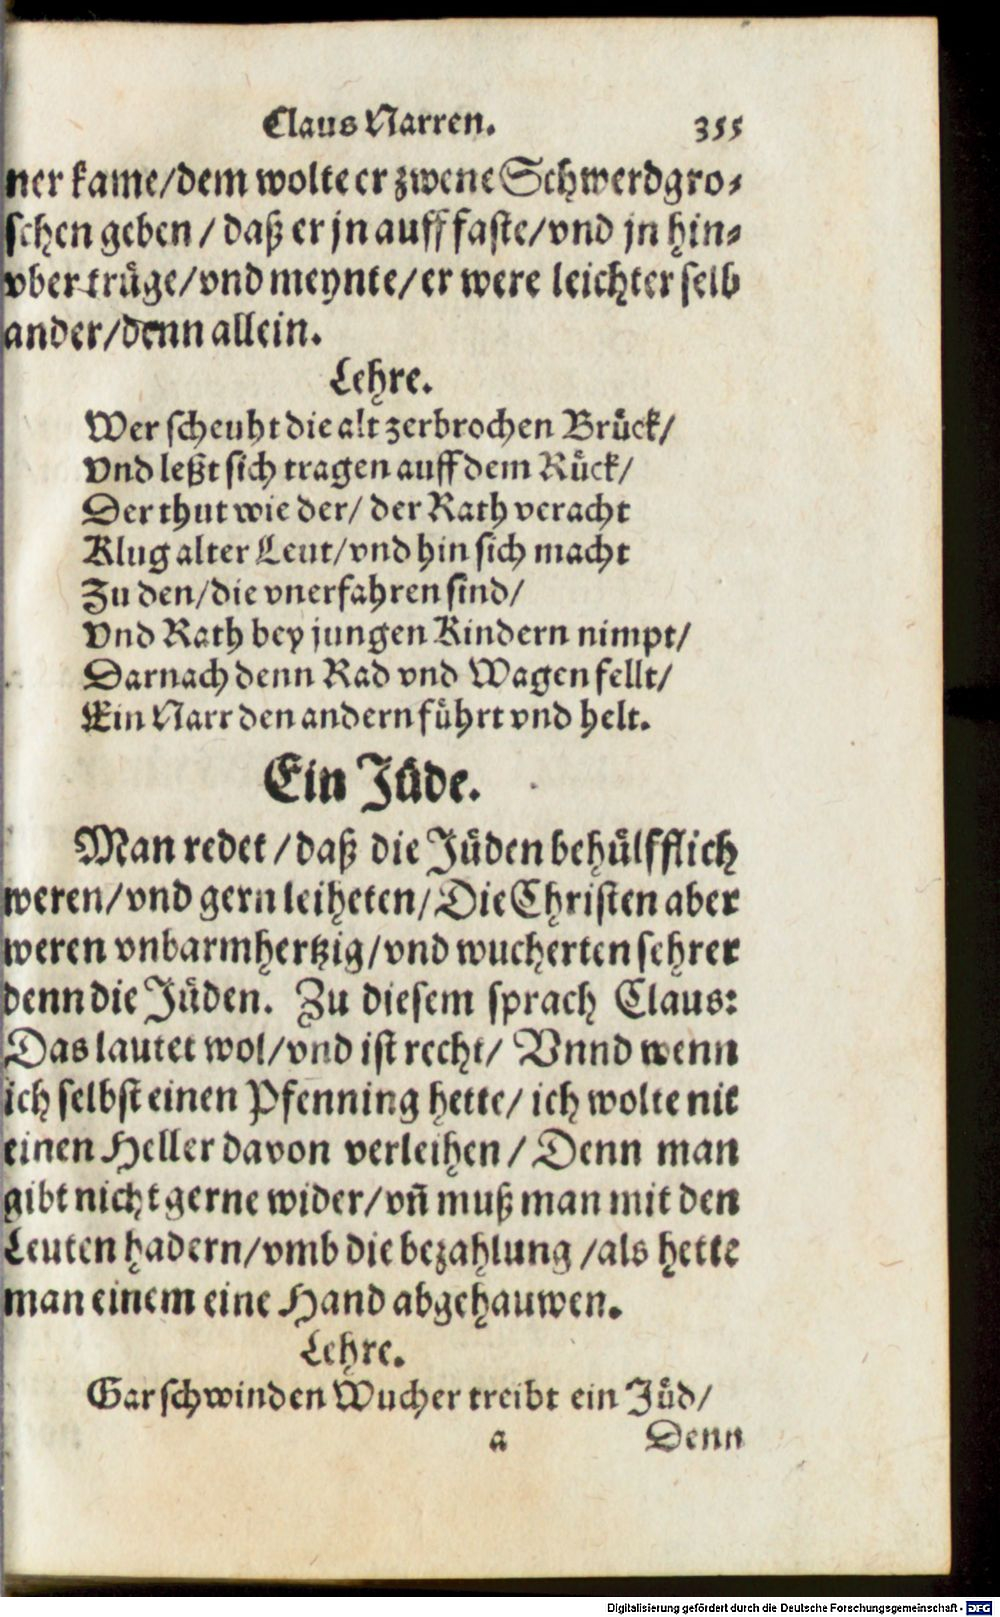 Claus Narren. 355
ner kame/dem wolte er zwene Schwerdgro-
schen geben / daß er jn auff faste/vnd jn hin-
vber trüge/vnd meynte/er were leichter selb
ander/denn allein.
Lehre.
Wer scheuht die alt zerbrochen Brück/
Vnd leßt sich tragen auff dem Rück/
Der thut wie der/ der Rath veracht
Klug alter Leut/vnd hin sich macht
Zu den/die vnerfahren sind/
Vnd Rath bey jungen Kindern nimpt/
Darnach denn Rad vnd Wagen fellt/
Ein Narr den andern führt vnd helt.
Ein Jüde.
Man redet / daß die Jüden behülfflich
weren/vnd gern leiheten/Die Christen aber
weren vnbarmhertzig/vnd wucherten sehrer
denn die Jüden. Zu diesem sprach Claus:
Das lautet wol/vnd ist recht/ Vnnd wenn
ich selbst einen Pfenning hette/ ich wolte nit
einen Heller davon verleihen / Denn man
gibt nicht gerne wider/vn̄ muß man mit den
Leuten hadern/vmb die bezahlung /als hette
man einem eine Hand abgehauwen.
Lehre.
Gar schwinden Wucher treibt ein Jüd/
a Denn
Digitalisierung gefördert durch die Deutsche Forschungsgemeinschaft - DFG